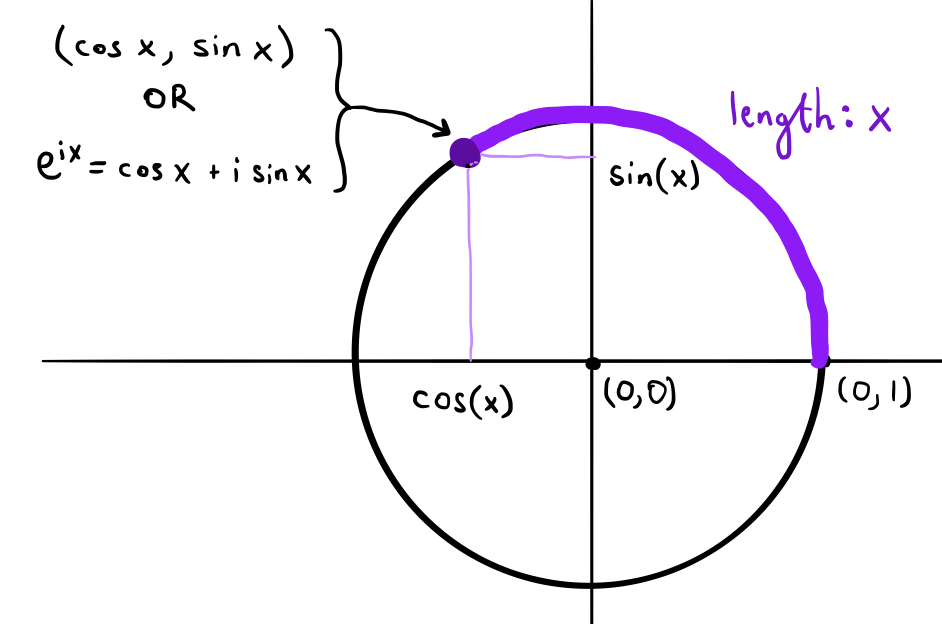 (cos x, sin x)
OR
e^{ix} = cos x + i sin x
length: x
sin(x)
cos(x)
(0,0)
(0,1)